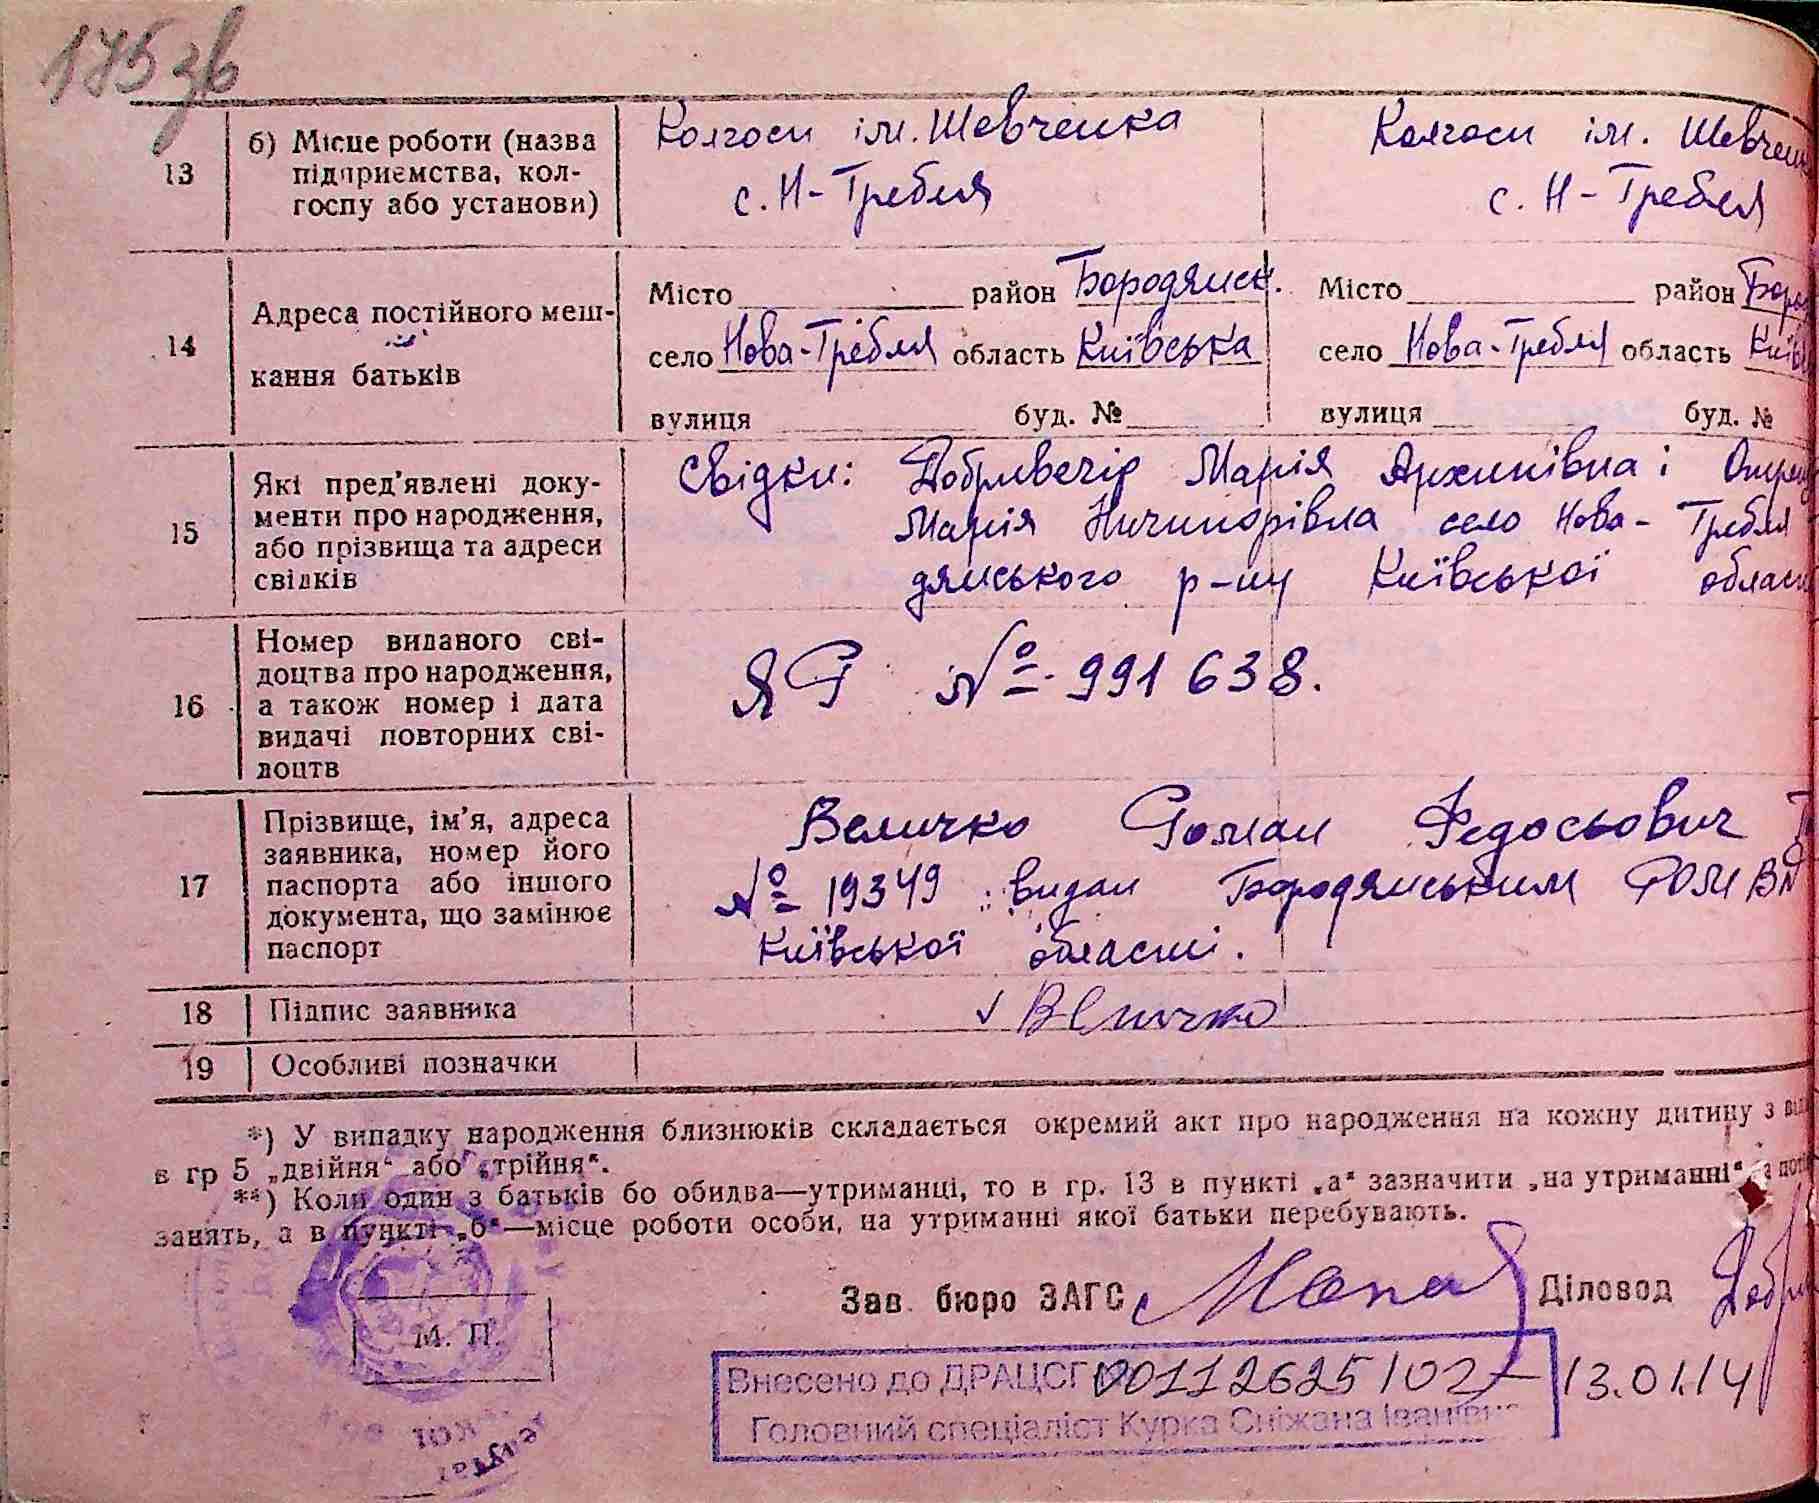 175 зв
13
б) Місце роботи (назва підприємства, колгоспу або установи)
Колгосп ім. Шевченка
с. Н-Требля
Колгосп ім. Шевчен
с. Н-Требля
14
Адреса постійного меш-
кання батьків
Місто район Бородянск.
село Нова-Требля область Київська
вулиця буд. №
Місто район Боро
село Нова-Требля область Київ
вулиця буд. №
15
Які пред'явлені доку-
менти про народження,
або прізвища та адреси
свідків
Свідки: Добривечір Марія Архипівна і
Марія Ничипорівна село Нова-Требля
дянського р-ну Київської област
16
Номер виданого сві-
доцтва про народження,
а також номер і дата
видачі повторних сві-
доцтв
ЯР № 991638.
17
Прізвище, ім'я, адреса
заявника, номер його
паспорта або іншого
документа, що замінює
паспорт
Величко Роман Федосьович
№ 19349 видан Бородянським РОМ
Київської області.
18
Підпис заявника
Величко
19
Особливі позначки
*) У випадку народження близнюків складається окремий акт про народження на кожну дитину з
в гр 5 „двійня“ або „трійня“.
**) Коли один з батьків бо обидва—утриманці, то в гр. 13 в пункті „а“ зазначити „на утриманні“
занять, а в пункті „б“—місце роботи особи, на утриманні якої батьки перебувають.
Зав. бюро ЗАГС
Діловод
М. П.
Внесено до ДРАЦСГ 00112625102 13.01.14
Головний спеціаліст Курка Сніжана Іванівн